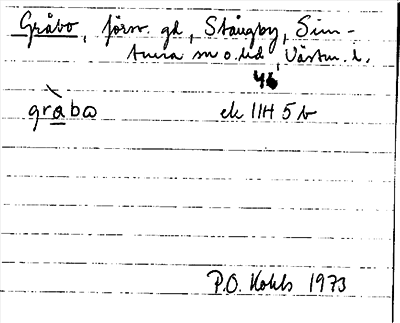 Gråbo, försv. gd, Stångby, Sim-
tuna sn o. hd, Västm. l.
46
gràbω ek IIH 5 b
P.O. Kohls 1973